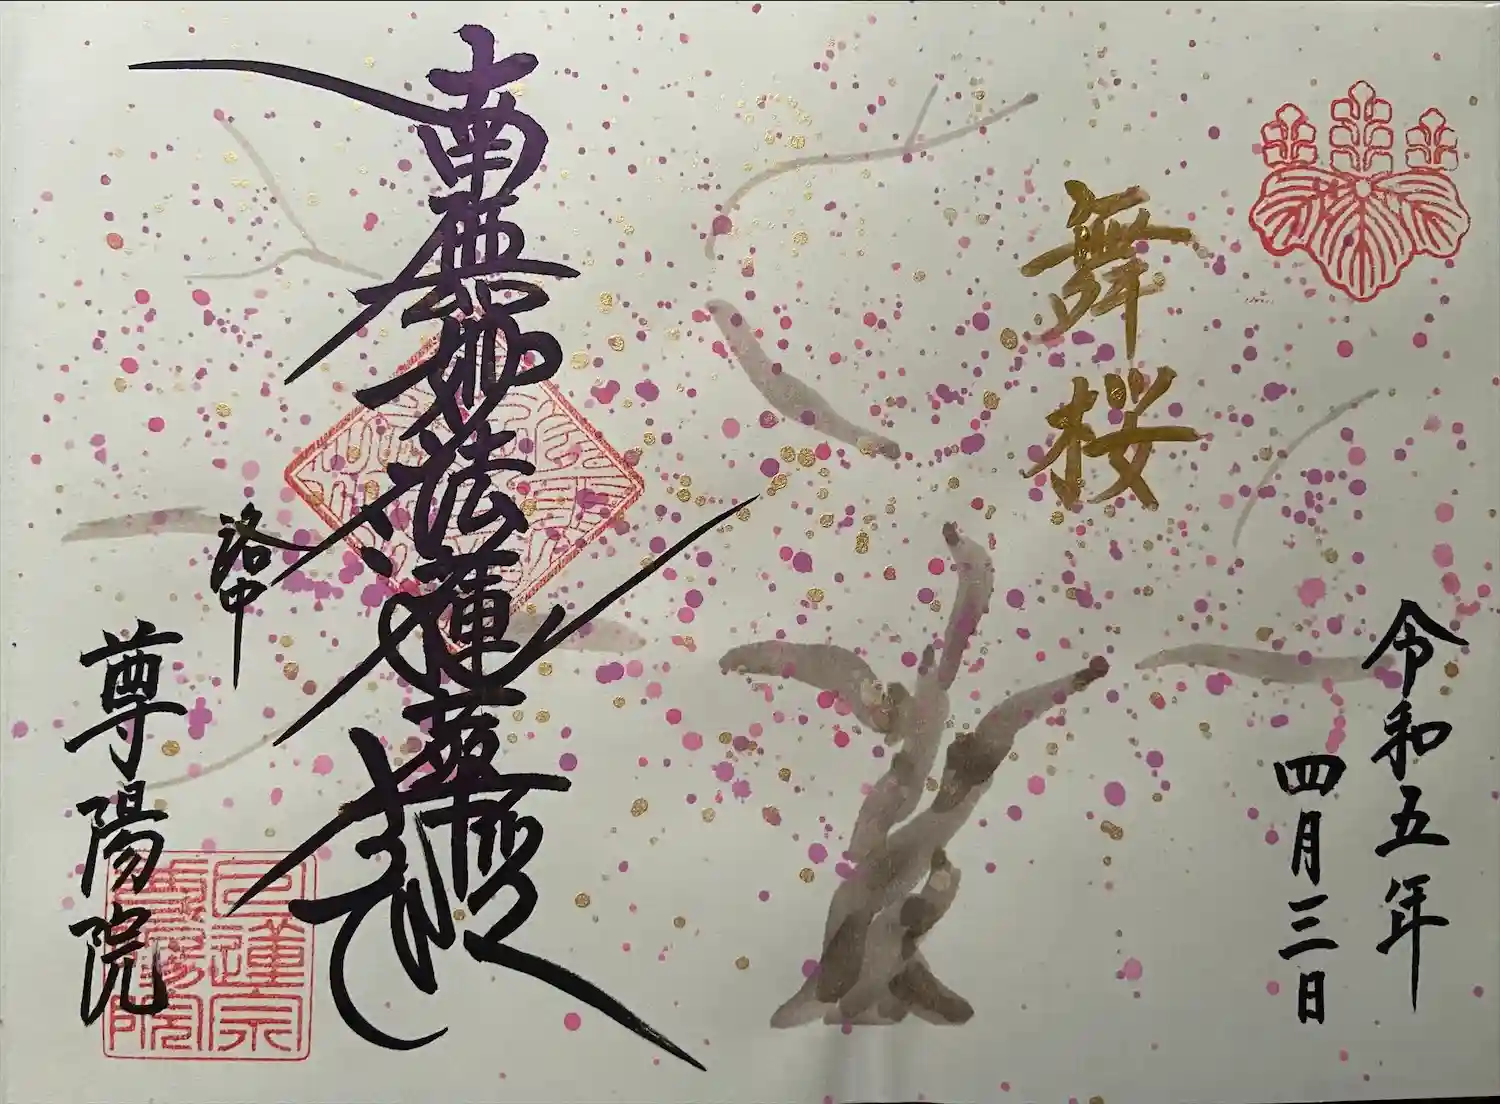 令和五年
四月三日
舞桜
南無妙法蓮華経
洛中
尊陽院
日蓮宗
尊陽院